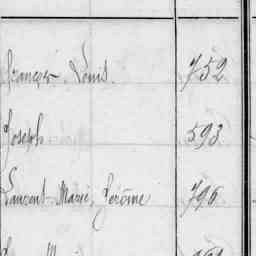 François Louis. 752
Joseph 593
Laurent Marie, Jérôme 796